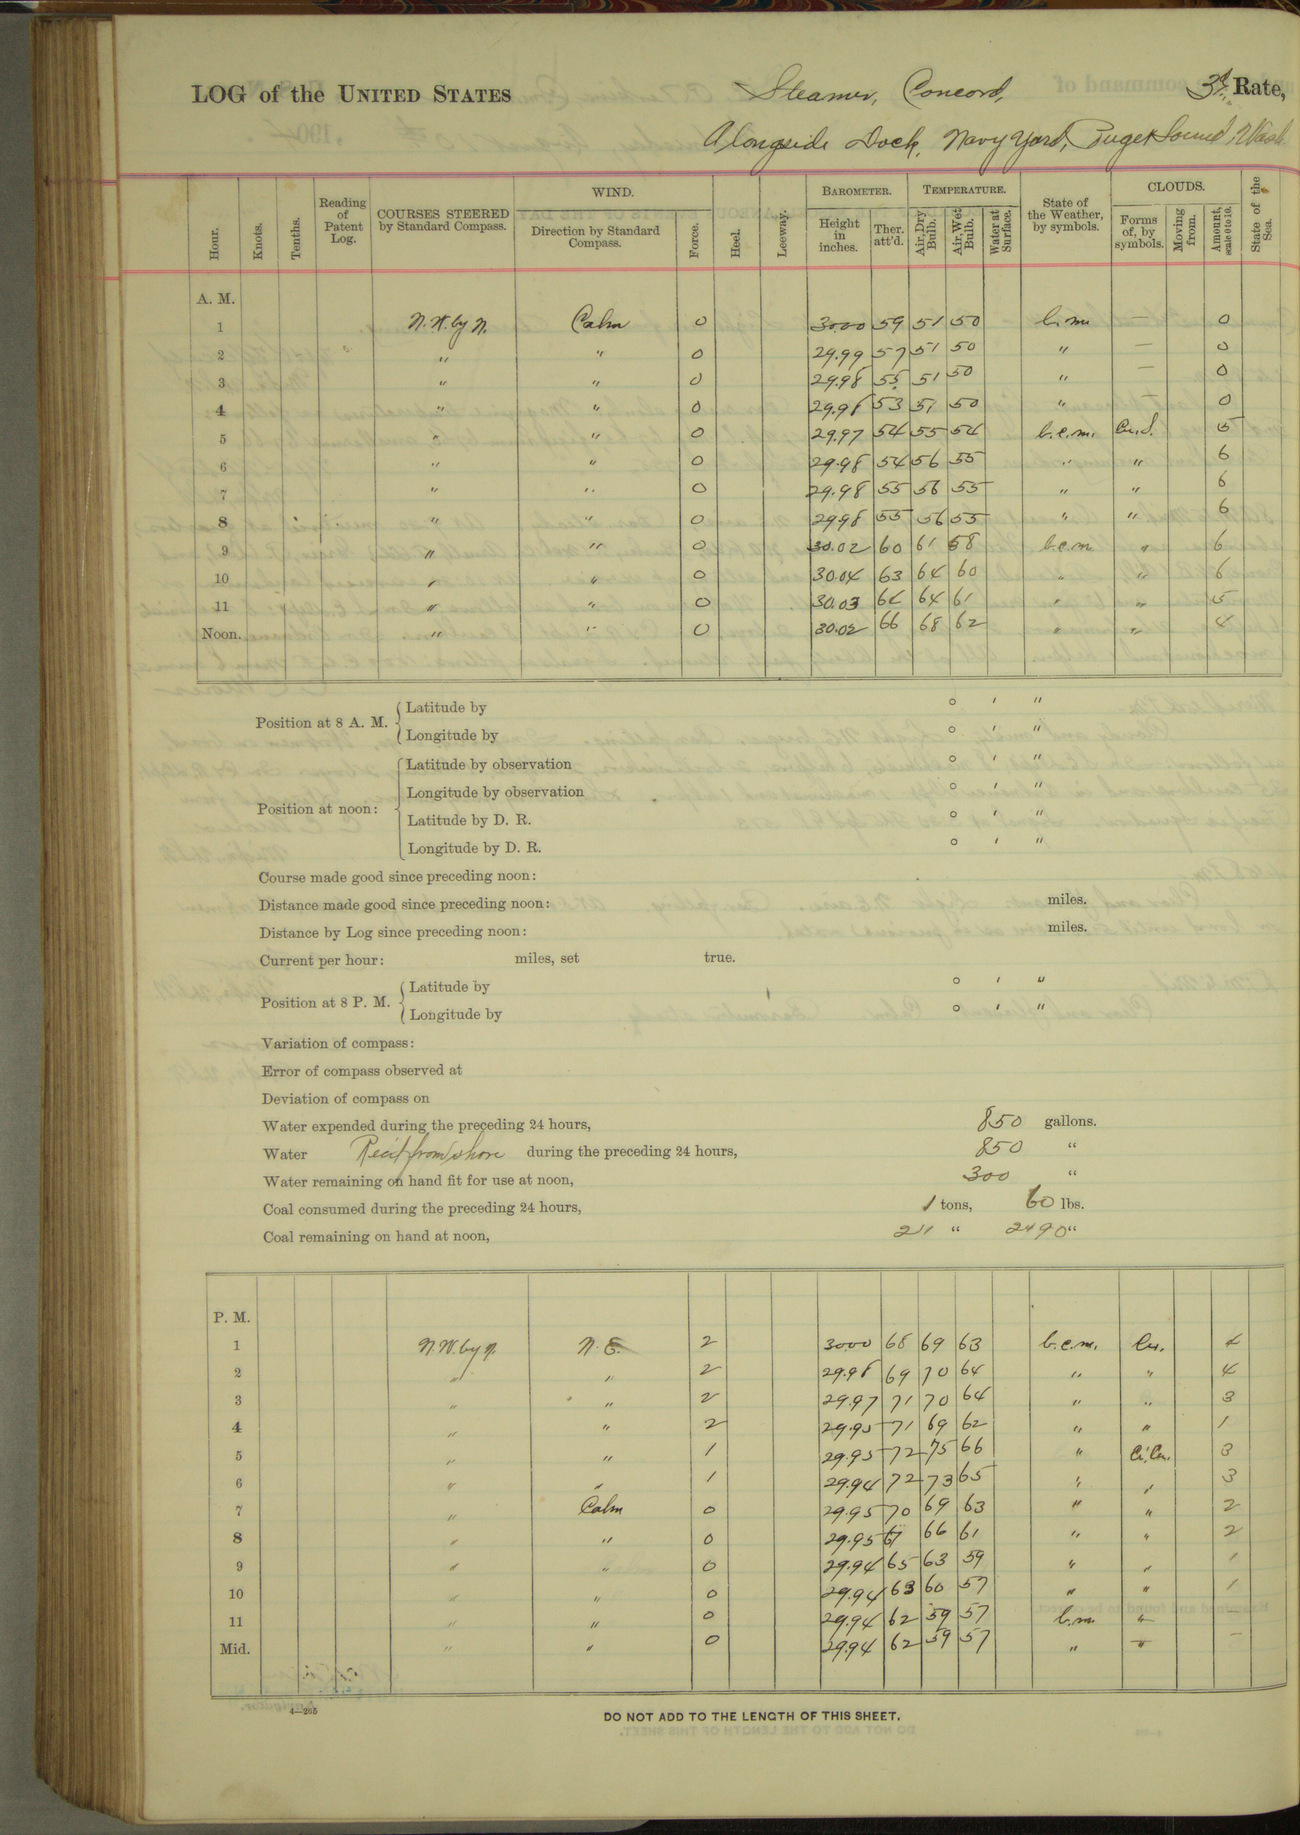 LOG of the UNITED STATES Steamer, Concord, 3d Rate,
Alongside Dock, Navy Yard, Puget Sound, Wash
Hour. Knots. Tenths. Reading of Patent Log. COURSES STEERED by Standard Compass. WIND. Direction by Standard Compass. Force. Heel. Leeway. BAROMETER. Height in inches. Ther. att'd. TEMPERATURE. Air, Dry Bulb. Air, Wet Bulb. Water at Surface. State of the Weather, by symbols. CLOUDS. Forms of, by symbols. Moving from. Amount, scale 0 to 10. State of the Sea.
A. M.
1 N.W. by N. Calm 0 30.00 59 51 50 b.m. — 0
2 " " 0 29.99 57 51 50 " — 0
3 " " 0 29.98 55 51 50 " — 0
4 " " 0 29.98 53 51 50 " — 0
5 " " 0 29.97 54 55 54 b.c.m. Cu.S. 5
6 " " 0 29.98 54 56 55 " " 6
7 " " 0 29.98 55 56 55 " " 6
8 " " 0 29.98 55 56 55 " " 6
9 " " 0 30.02 60 61 58 b.c.m. " 6
10 " " 0 30.04 63 64 60 " " 6
11 " " 0 30.03 64 64 61 " " 5
Noon. " " 0 30.02 66 68 62 " " 4
Position at 8 A. M. Latitude by ° ′ ″
Longitude by ° ′ ″
Position at noon: Latitude by observation ° ′ ″
Longitude by observation ° ′ ″
Latitude by D. R. ° ′ ″
Longitude by D. R. ° ′ ″
Course made good since preceding noon:
Distance made good since preceding noon: miles.
Distance by Log since preceding noon: miles.
Current per hour: miles, set true.
Position at 8 P. M. Latitude by ° ′ ″
Longitude by ° ′ ″
Variation of compass:
Error of compass observed at
Deviation of compass on
Water expended during the preceding 24 hours, 850 gallons.
Water Rec'd from shore during the preceding 24 hours, 850 "
Water remaining on hand fit for use at noon, 300 "
Coal consumed during the preceding 24 hours, 1 tons, 60 lbs.
Coal remaining on hand at noon, 211 " 2490 "
P. M.
1 N.W. by N. N.E. 2 30.00 68 69 63 b.c.m. Cu. 4
2 " " 2 29.98 69 70 64 " " 4
3 " " 2 29.97 71 70 64 " " 3
4 " " 2 29.95 71 69 62 " " 1
5 " " 1 29.95 72 75 66 " Ci.Cu. 3
6 " " 1 29.94 72 73 65 " " 3
7 " Calm 0 29.95 70 69 63 " " 2
8 " " 0 29.95 67 66 61 " " 2
9 " " 0 29.94 65 63 59 " " 1
10 " " 0 29.94 63 60 57 " " 1
11 " " 0 29.94 62 59 57 b.m. — —
Mid. " " 0 29.94 62 59 57 " — —
4—265
DO NOT ADD TO THE LENGTH OF THIS SHEET.